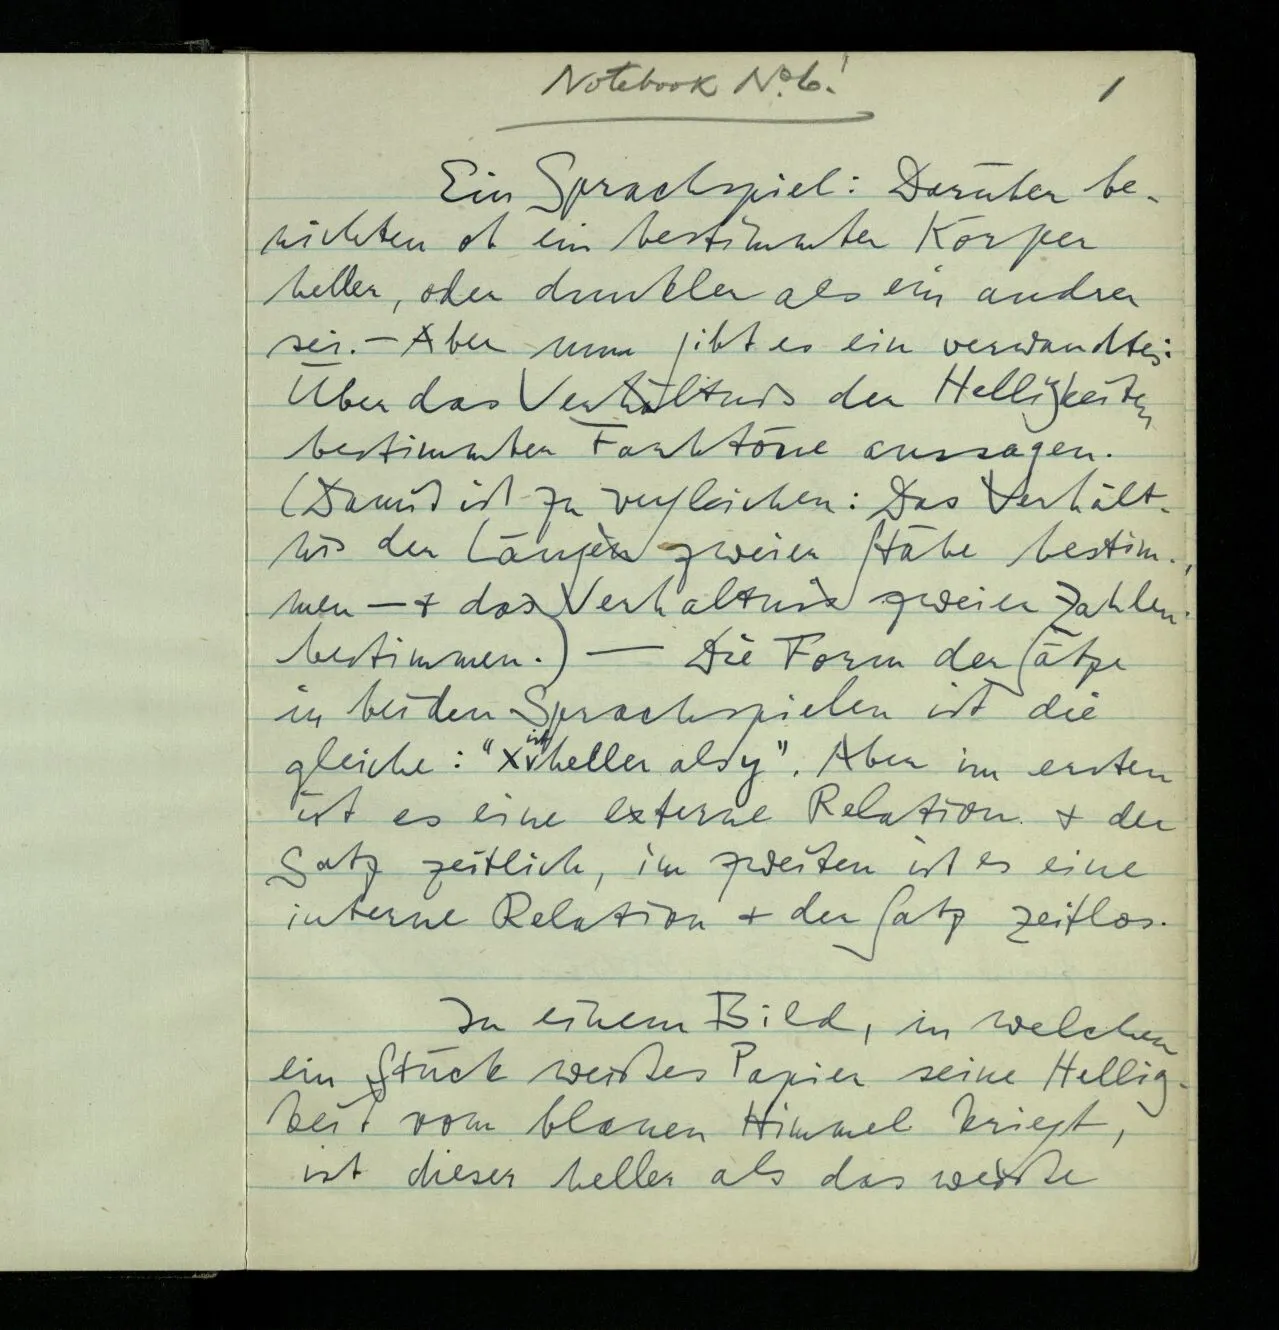 Notebook No. 6.
1
Ein Sprachspiel: Darüber be-
richten ob ein bestimmter Körper
heller, oder dunkler als ein andrer
sei. – Aber nun gibt es ein verwandtes:
Über das Verhältnis der Helligkeiten
bestimmter Farbtöne aussagen.
(Damit ist zu vergleichen: Das Verhält-
nis der Längen zweier Stäbe bestim-
men – + das Verhältnis zweier Zahlen
bestimmen.) — Die Form der Sätze
in beiden Sprachspielen ist die
gleiche: "X ist heller als y". Aber im ersten
ist es eine externe Relation + der
Satz zeitlich, im zweiten ist es eine
interne Relation + der Satz zeitlos.
In einem Bild, in welchem
ein Stück weißes Papier seine Hellig-
keit vom blauen Himmel kriegt,
ist dieser heller als das weiße